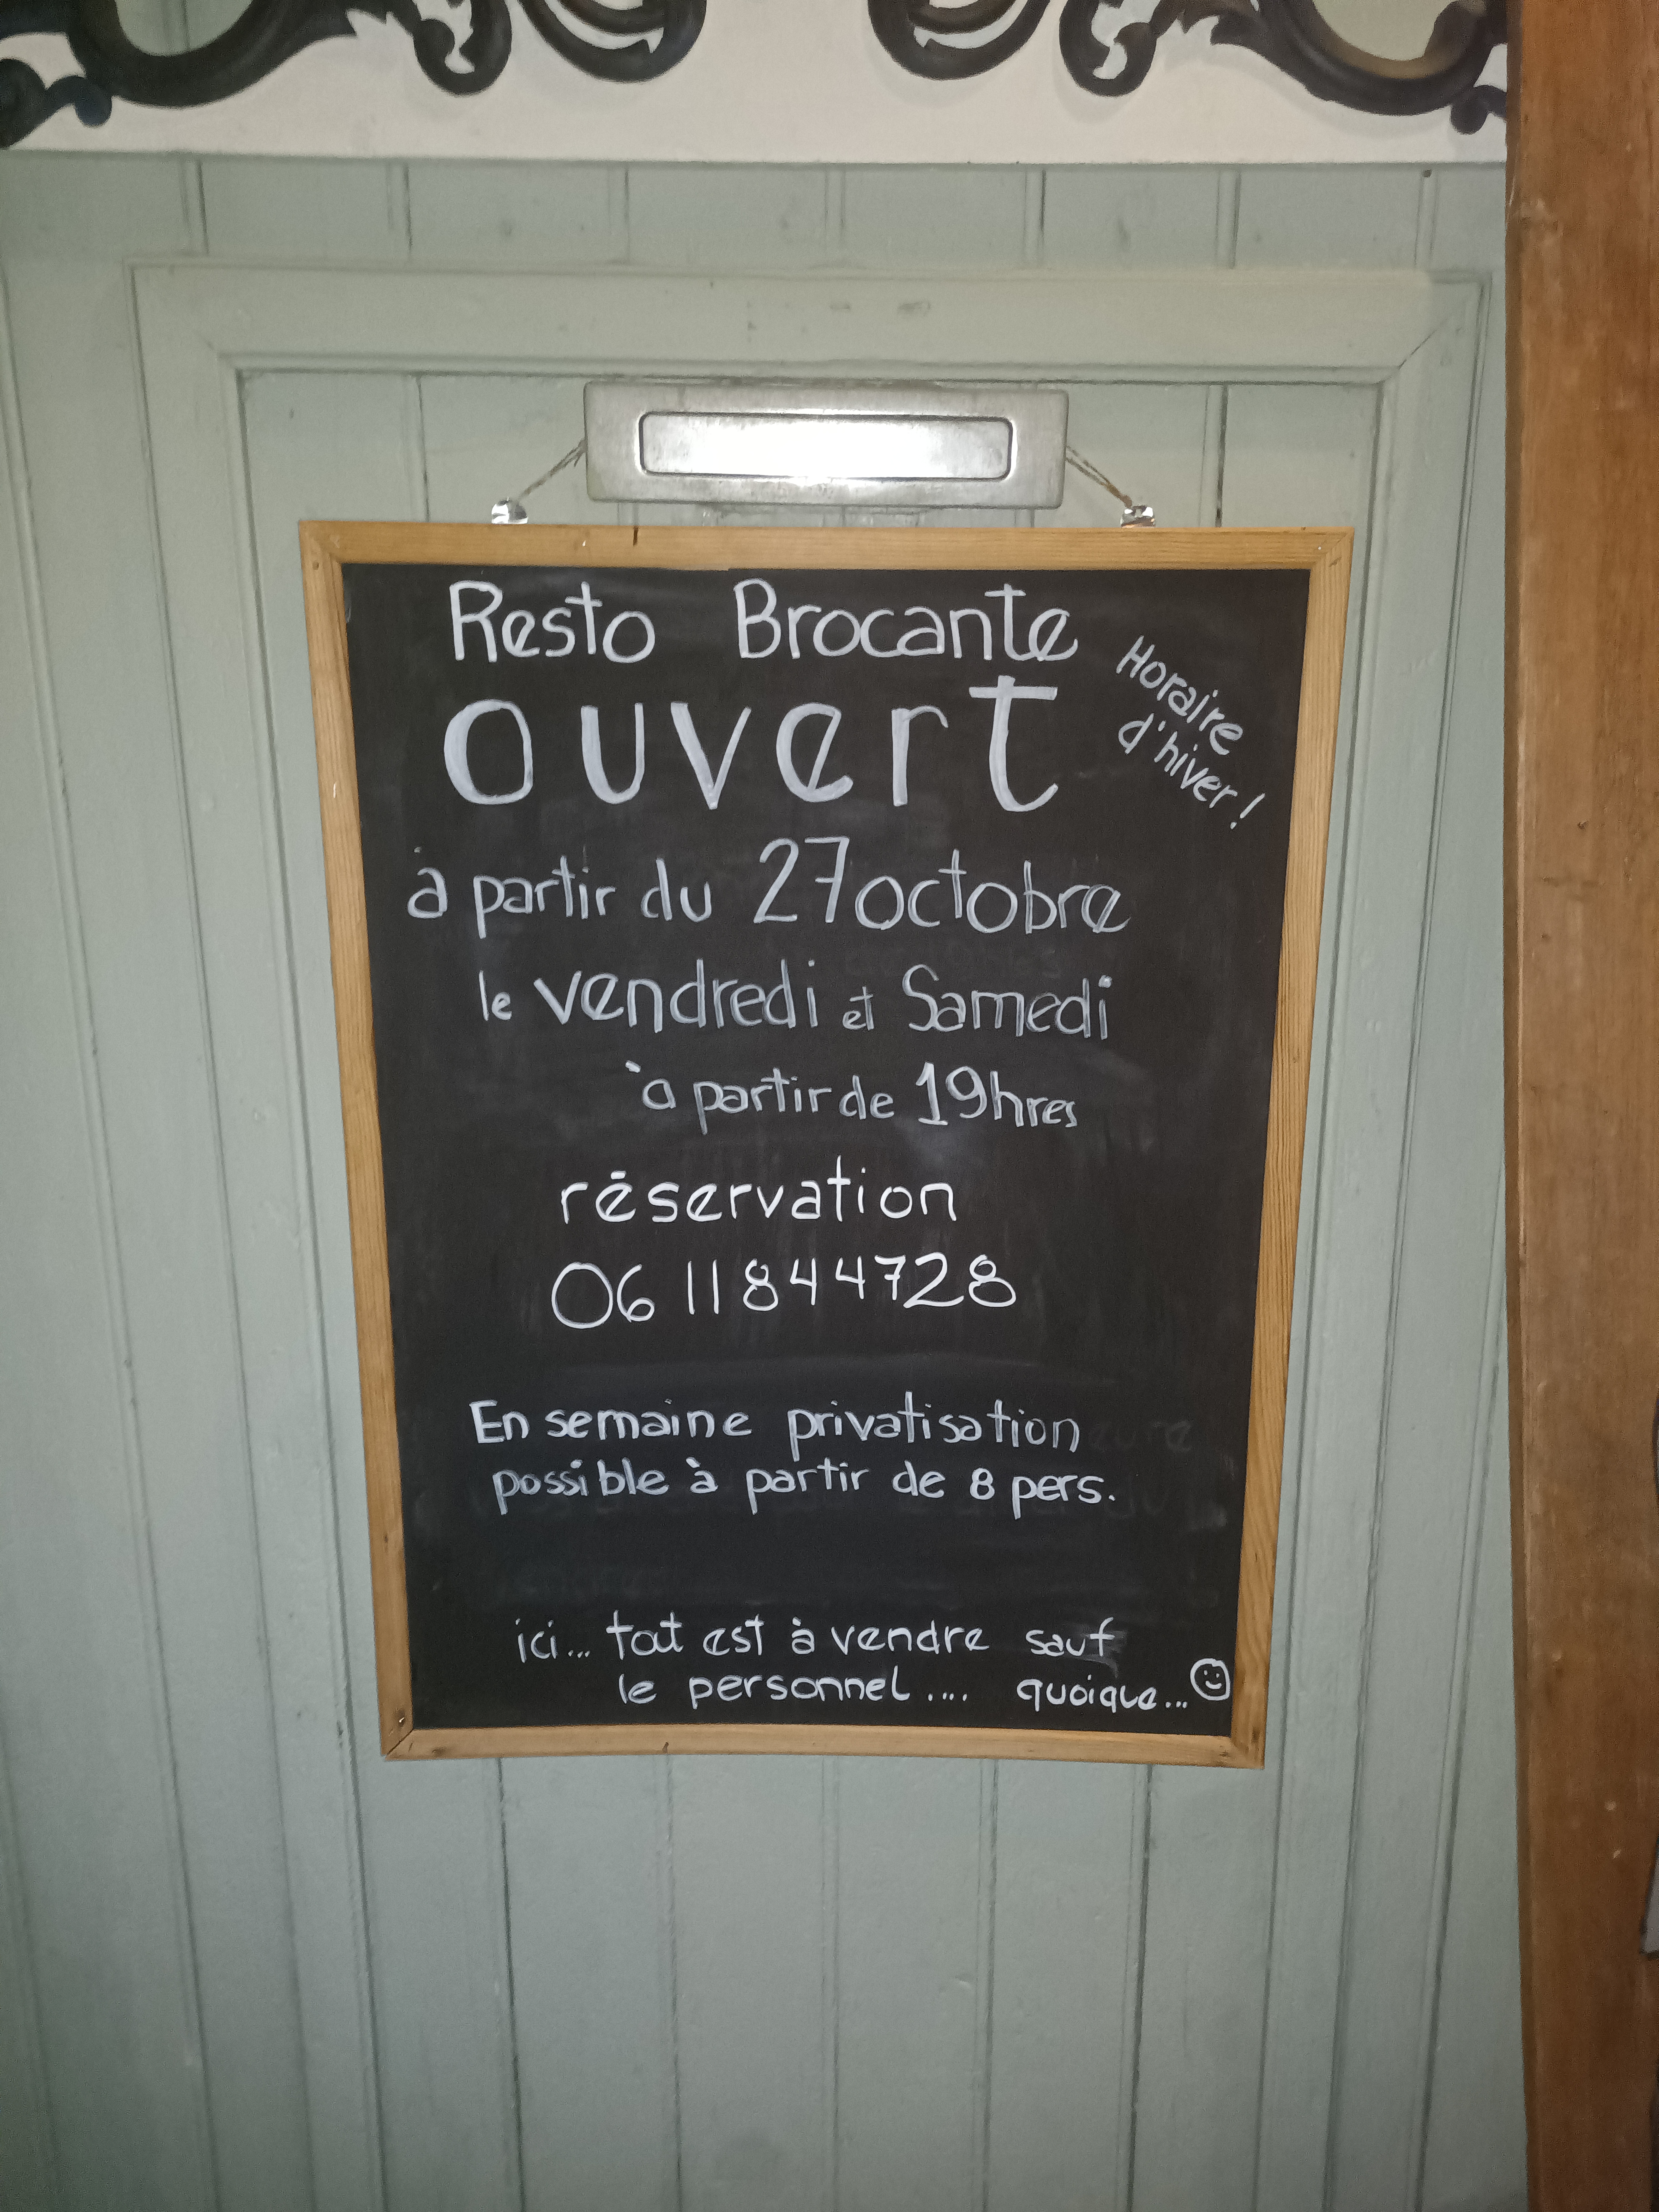 Resto Brocante
ouvert
Horaire
d'hiver !
à partir du 27 octobre
le vendredi et Samedi
à partir de 19hres
réservation
06 11844728
En semaine privatisation
possible à partir de 8 pers.
ici... tout est à vendre sauf
le personnel .... quoique...